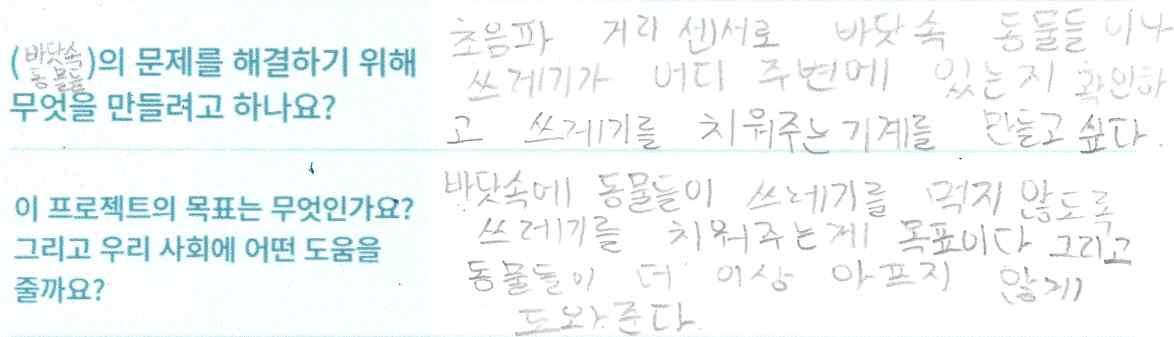 (바닷속 동물들)의 문제를 해결하기 위해
무엇을 만들려고 하나요?
초음파 거리 센서로 바닷속 동물들이나
쓰레기가 어디 주변에 있는지 확인하
고 쓰레기를 치워주는 기계를 만들고 싶다.
이 프로젝트의 목표는 무엇인가요?
그리고 우리 사회에 어떤 도움을
줄까요?
바닷속에 동물들이 쓰레기를 먹지 않도록
쓰레기를 치워주는게 목표이다 그리고
동물들이 더 이상 아프지 않게
도와준다.